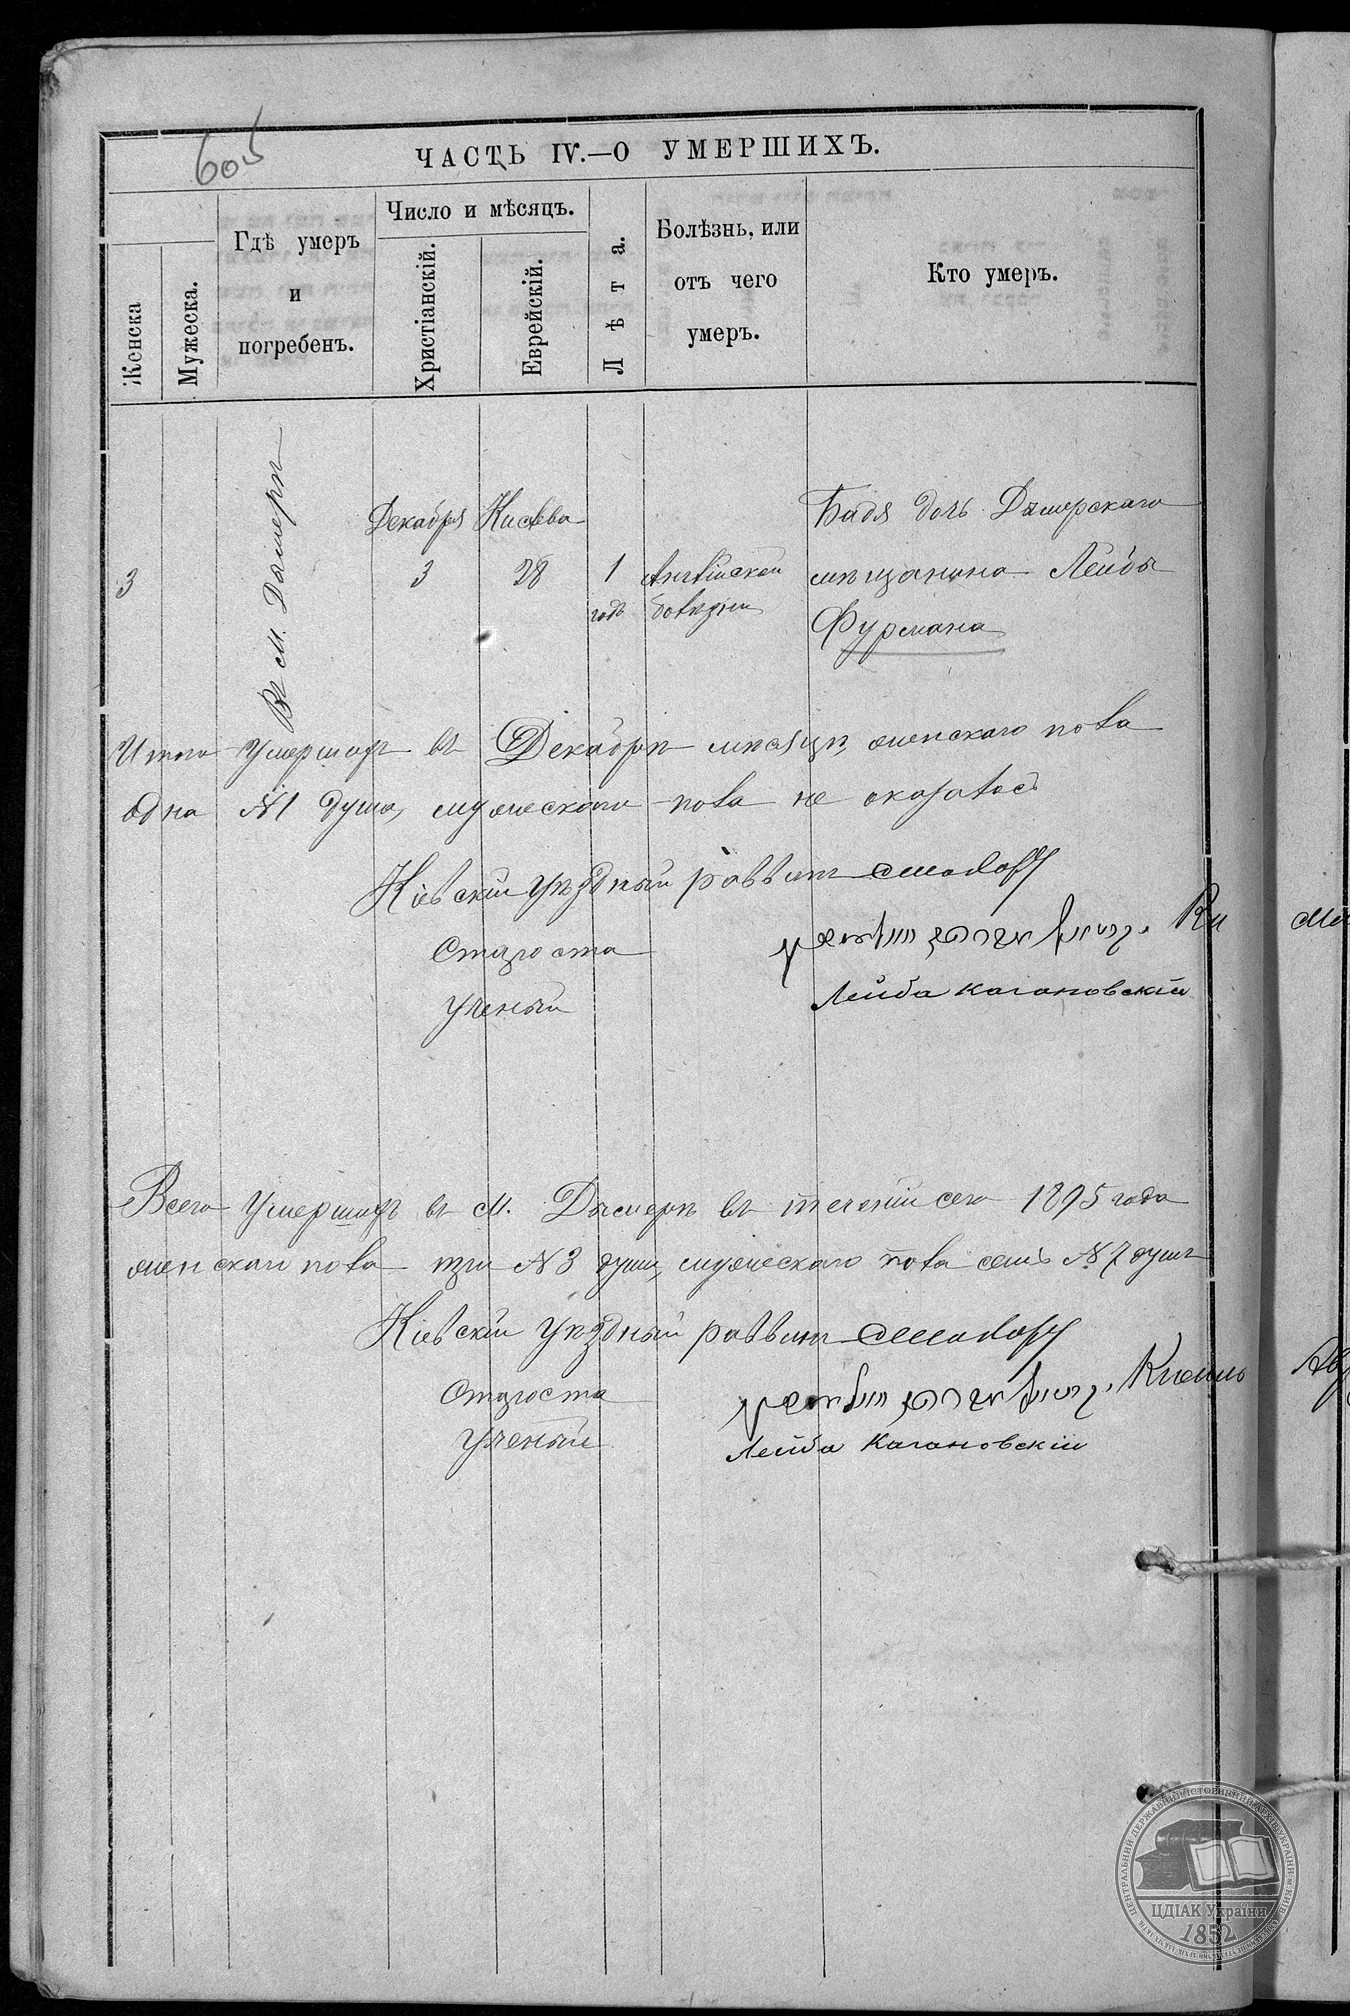 605
ЧАСТЬ IV.—О УМЕРШИХЪ.
Женска
Мужеска.
Гдѣ умеръ
и
погребенъ.
Число и мѣсяцъ.
Христіанскій.
Еврейскій.
Лѣта.
Болѣзнь, или
отъ чего
умеръ.
Кто умеръ.
3
Въ М. Дымерѣ
Декабря
3
Кислева
28
1
годъ
Англійской
болѣзни
Бадя дочь Дымерскаго
мѣщанина Лейбы
Фурмана
Итого Умершихъ въ Декабрѣ мѣсяцѣ женскаго пола
одна №1 душа, мужескаго пола не оказалось
Кіевскій Уѣздный раввинъ
Староста
Ки
Ученый
Лейба Кагановскій
Всего Умершихъ въ М. Дымерѣ въ теченіи сего 1895 года
женскаго пола три №3 души, мужескаго пола семь №7 душъ
Кіевскій Уѣздный раввинъ
Староста
Ученый
Лейба Кагановскій
ЦЕНТРАЛЬНИЙ ДЕРЖАВНИЙ ІСТОРИЧНИЙ АРХІВ УКРАЇНИ м. КИЇВ
ЦДІАК України
1852